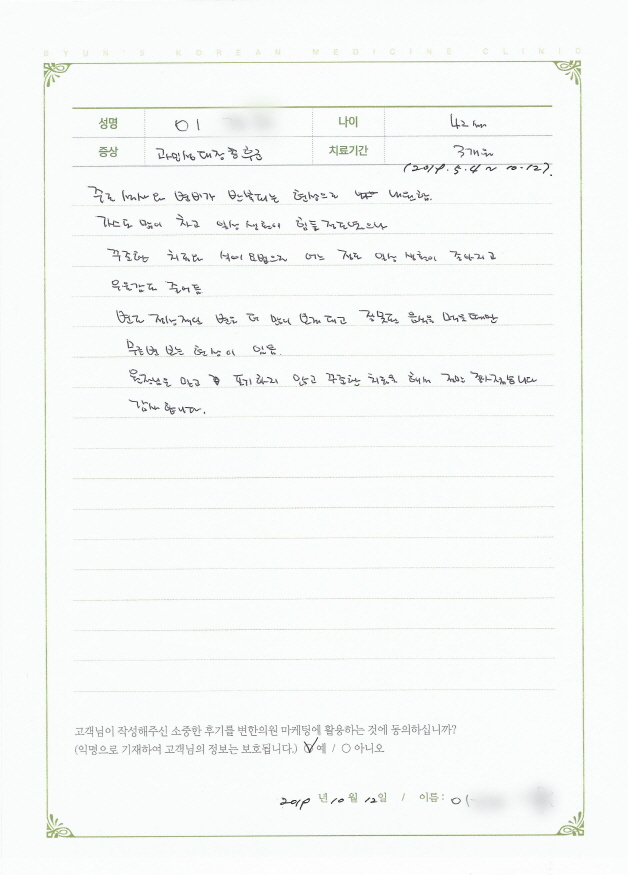 BYUN'S KOREAN MEDICINE CLINIC
성명 이 나이 42세
증상 과민성대장증후군 치료기간 3개월
(2019. 5. 4 ~ 10. 12).
주로 설사와 변비가 반복되는 현상으로 내원함.
가스도 많이 차고 일상 생활이 힘들 정도였으나
꾸준한 치료와 식이요법으로 어느 정도 일상 생활이 좋아지고
우울감도 줄어듬
변도 정상적인 변을 더 많이 보게 되고 잘못된 음식을 먹을때만
무른변 보는 현상이 있음.
원장님을 믿고 포기하지 않고 꾸준한 치료를 해서 정말 좋아졌습니다
감사합니다.
고객님이 작성해주신 소중한 후기를 변한의원 마케팅에 활용하는 것에 동의하십니까?
(익명으로 기재하여 고객님의 정보는 보호됩니다.) 예 / 아니오
2019 년 10 월 12 일 / 이름 : 이